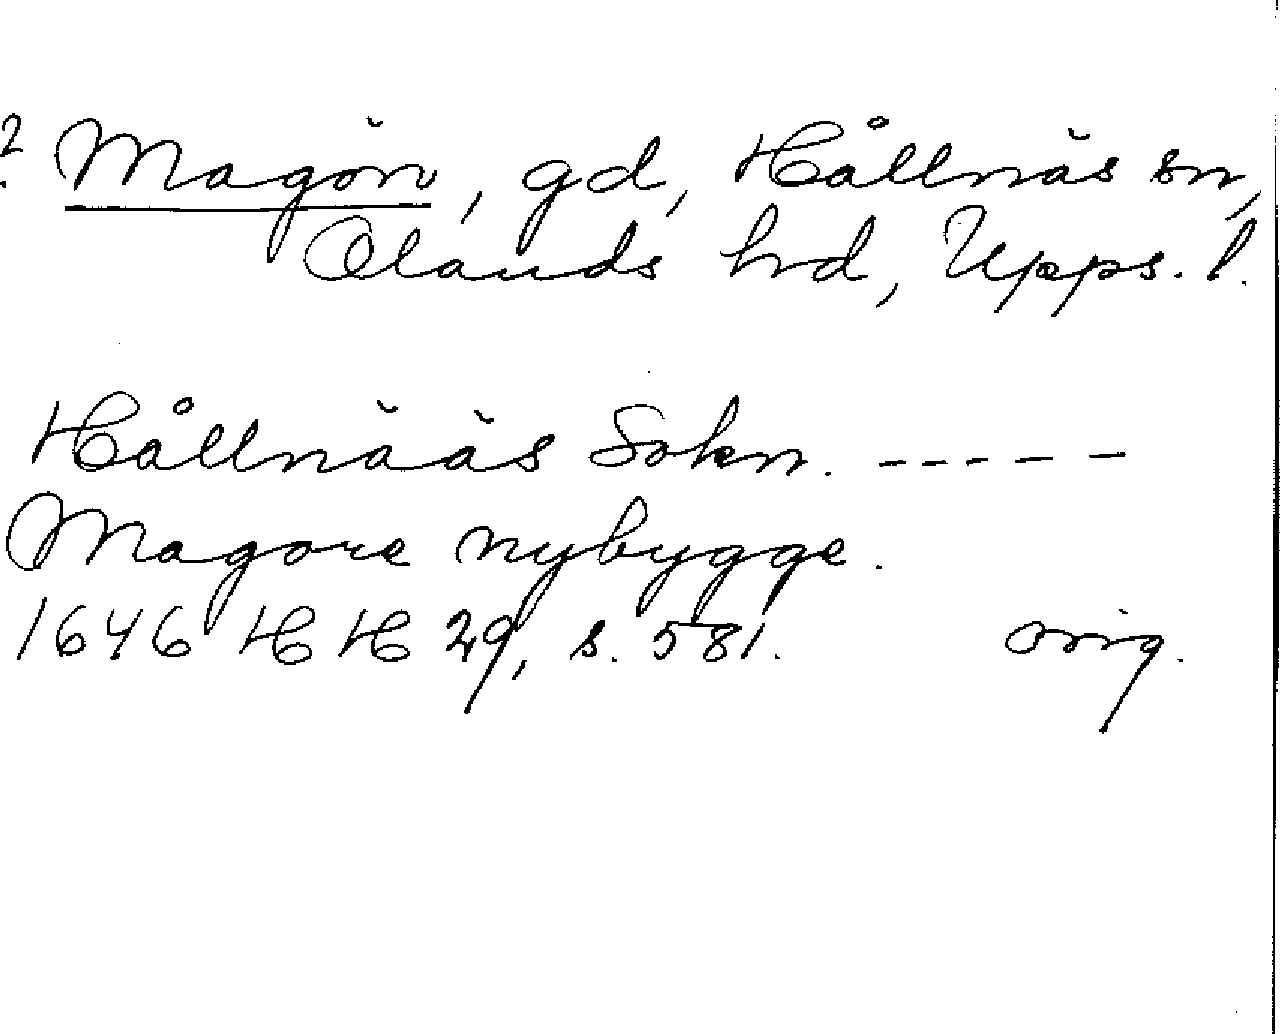 ? Magön, gd, Hållnäs sn,
Olands hd, Upps. l.
Hållnääs Sokn. - - - - -
Magore nybygge.
1646 HH 29, s. 581. orig.